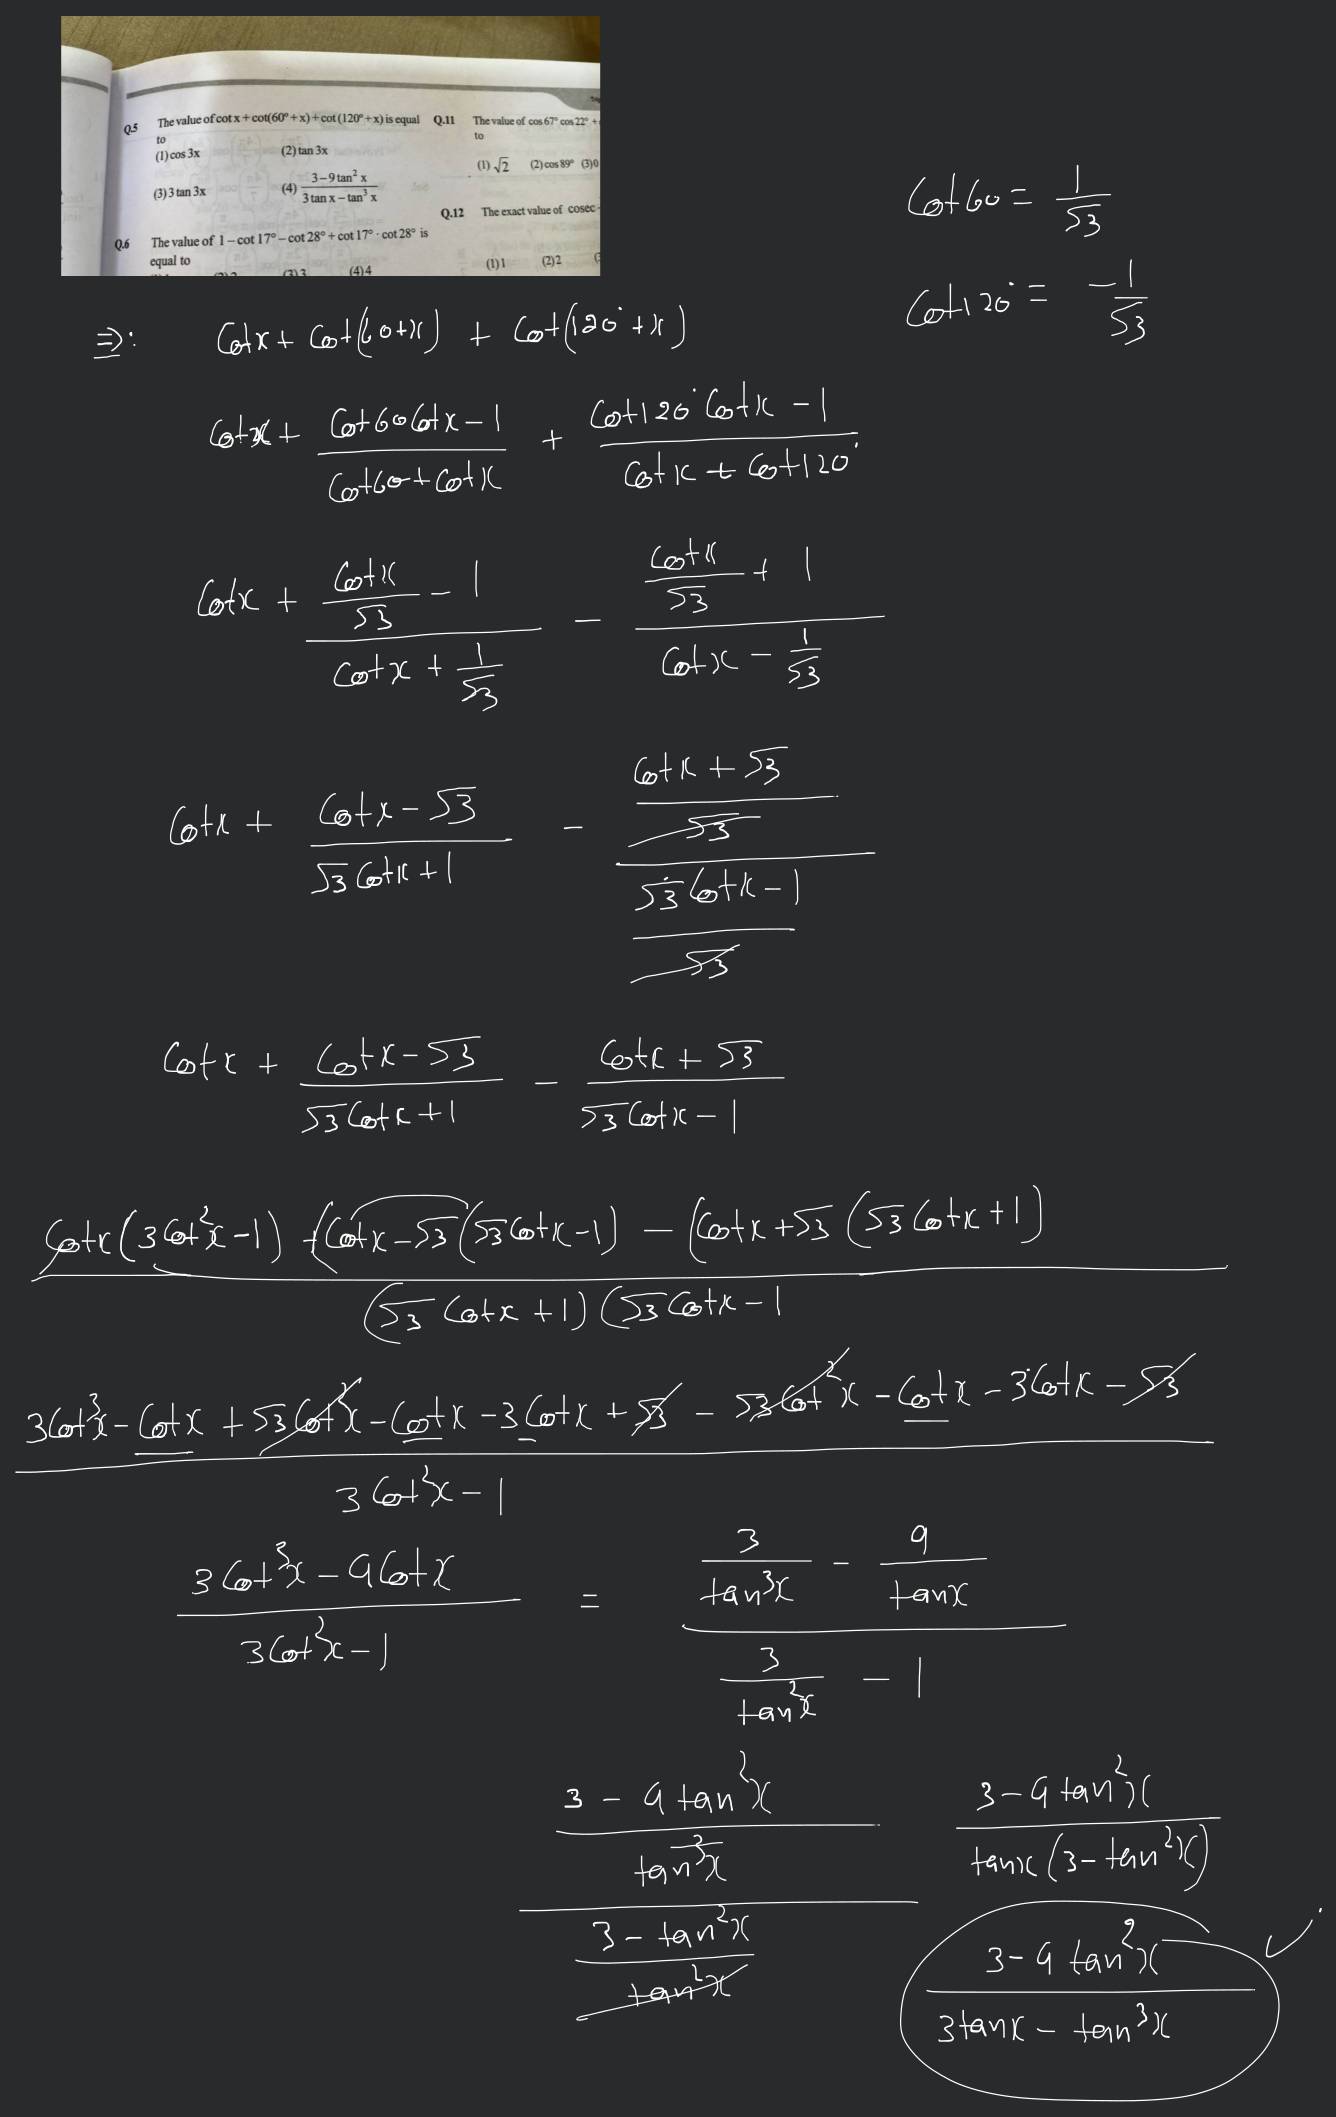 Q.5 The value of cot x + cot(60° + x) + cot (120° + x) is equal
to
(1) cos 3x (2) tan 3x
(3) 3 tan 3x (4) (3 – 9 tan² x)/(3 tan x – tan³ x)
Q.6 The value of 1 – cot 17° – cot 28° + cot 17° · cot 28° is
equal to
(3) 3 (4) 4
Q.11 The value of cos 67° cos 22° +
to
(1) √2 (2) cos 89° (3) 0
Q.12 The exact value of cosec
(1) 1 (2) 2
Cot60 = 1/√3
Cot120° = -1/√3
⇒: Cotx + Cot(60+x) + Cot(120°+x)
Cotx + (Cot60Cotx - 1)/(Cot60 + Cotx) + (Cot120°Cotx - 1)/(Cotx + Cot120°)
Cotx + (Cotx/√3 - 1)/(Cotx + 1/√3) - (Cotx/√3 + 1)/(Cotx - 1/√3)
Cotx + (Cotx - √3)/(√3Cotx + 1) - ((Cotx + √3)/√3)/((√3Cotx - 1)/√3)
Cotx + (Cotx - √3)/(√3Cotx + 1) - (Cotx + √3)/(√3Cotx - 1)
Cotx(3Cot²x - 1) + (Cotx - √3(√3Cotx - 1) - (Cotx + √3(√3Cotx + 1)
(√3Cotx + 1)(√3Cotx - 1
3Cot³x - Cotx + √3Cot²x - Cotx - 3Cotx + √3 - √3Cot²x - Cotx - 3Cotx - √3
3Cot²x - 1
(3Cot³x - 9Cotx)/(3Cot²x - 1) = (3/tan³x - 9/tanx)/(3/tan²x - 1)
((3 - 9tan²x)/tan³x)/((3 - tan²x)/tan²x)
(3 - 9tan²x)/(tanx(3 - tan²x))
(3 - 9tan²x)/(3tanx - tan³x) ✓